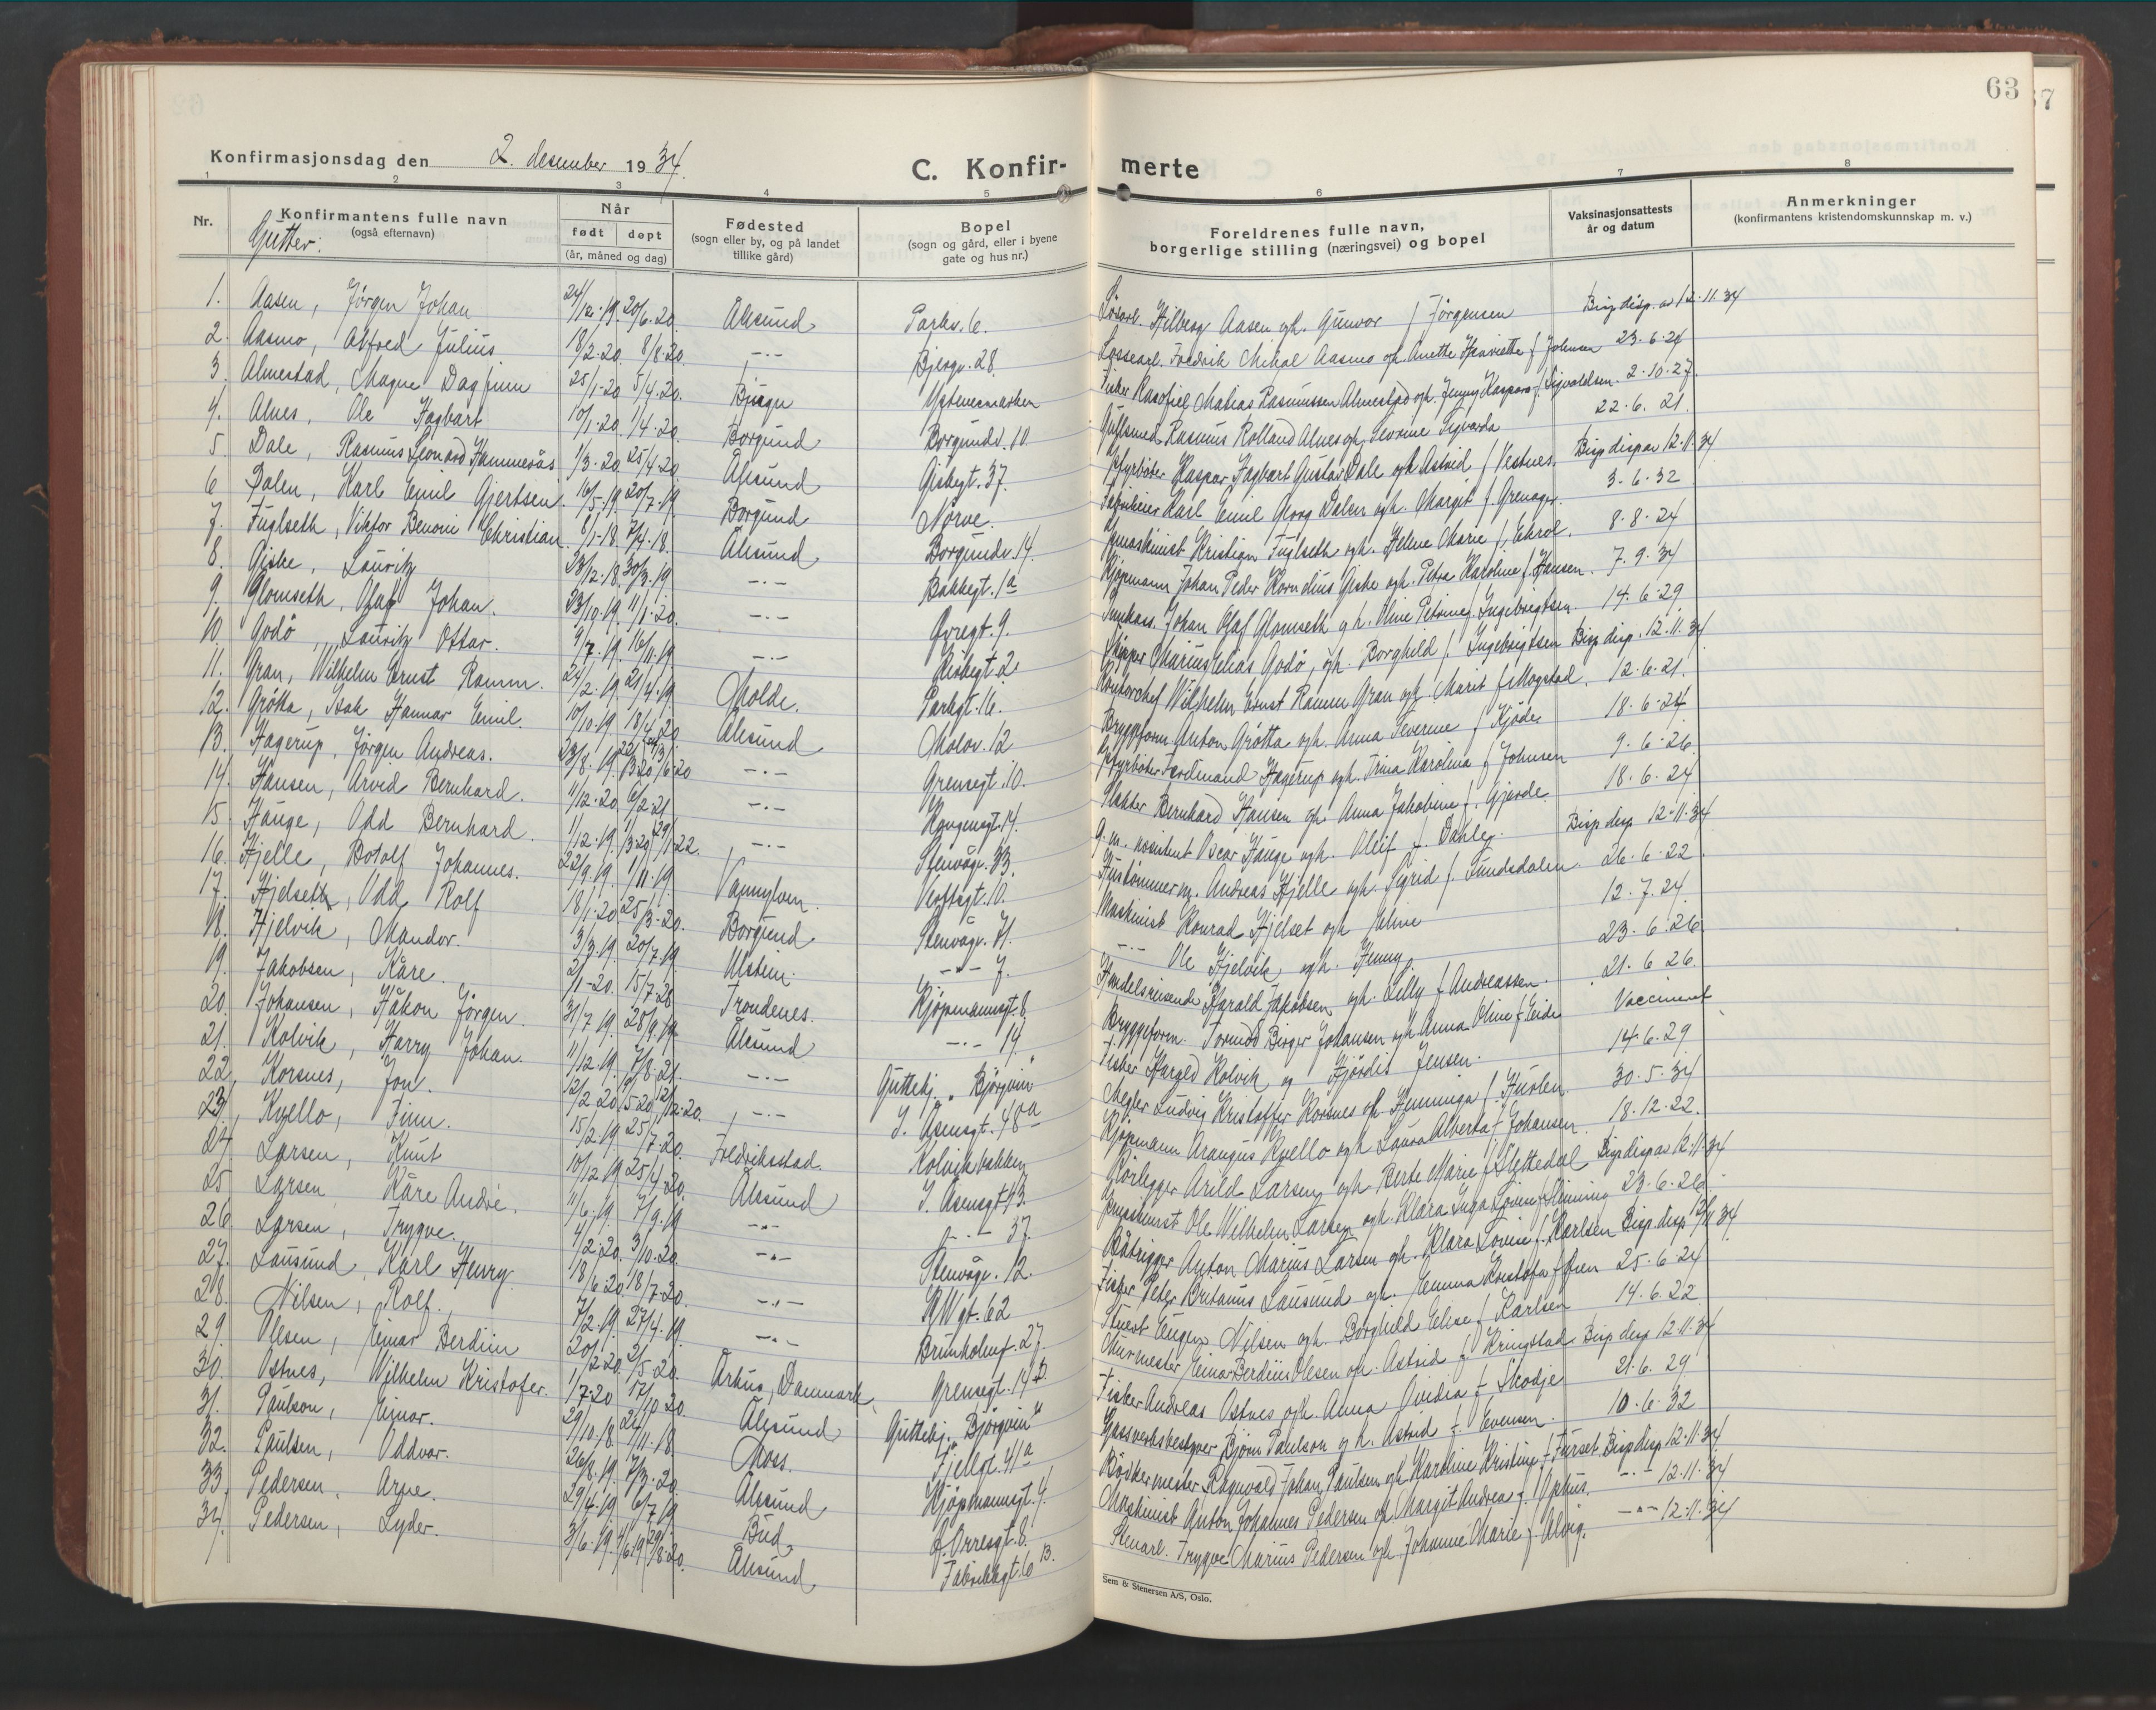 63
Konfirmasjonsdag den 2. desember 1934.
C. Konfirmerte
1 2 3 4 5 6 7 8
Nr. | Konfirmantens fulle navn (også efternavn) | Når født | døpt (år, måned og dag) | Fødested (sogn eller by, og på landet tillike gård) | Bopel (sogn og gård, eller i byene gate og hus nr.) | Foreldrenes fulle navn, borgerlige stilling (næringsvei) og bopel | Vaksinasjonsattests år og datum | Anmerkninger (konfirmantens kristendomskunnskap m. v.)
Gutter:
1. Aasen, Jörgen Johan 24/12.19. 20/6.20. Ålesund Parkv. 6. Hilberg Aasen og h. Gunvor f Jörgensen Bisp disp. av 12.11.34
2. Aasmo, Alfred Julius. 18/2.20. 8/8.20. -.- Bjergv. 28. Lossearb. Fredrik Mikal Aasmo og h. Anette Henriette f Johnsen 23.6.24
3. Almestad, Magne Dagfinn 25/1.20 5/4.20. Ystenesmarken Fisker Matias Rasmussen Almestad og h. Jenny Kaspara f. Sigvaldsen. 2.10.27.
4. Alnes, Ole Hagbart 10/1.20. 1/4.20. Borgund Borgundv. 10. Gullsmed Rasmus Rolland Alnes og h. Severine Sigvarda 22.6.21.
5. Dale, Rasmus Leonard Hammerås 1/3.20. 25/4.20. Ålesund Giskegt. 37. Fyrböter Kaspar Hagbart Gustav Dale og h. Astrid f Vestnes. Bisp disp av 12.11.34
6 Dalen, Karl Emil Gjertsen. 16/5.19. 20/7.19. Borgund Nörve. Karl Emil Georg Dalen og h. Margit f. Grenager. 3.6.32
7. Fuglseth, Viktor Benoni Christian. 8/1.18. 7/4.18. Ålesund Borgundv. 14. Kristian Fuglseth og h. Helene Marie f. Ekrol. 8.8.24
8. Giske, Lauritz 23/12.18. 30/3.19. -.- Bakkegt. 1a Kjöpmann Johan Peder Kornelius Giske og h. Petra Karoline f. Hansen. 7.9.34
9. Glomseth, Olaf Johan. 23/10.19. 11/1.20. -.- Övregt. 9. Johan Olaf Glomseth og h. Oline Petrine f. Ingebrigtsen. 14.6.29
10. Godö, Lauritz Ottar. 9/7.19. 16/11.19. -.- Kirkegt. 2. Skipper Marius Elias Godö, og h. Borghild f. Ingebrigtsen Bisp disp. 12.11.34
11. Gran, Wilhelm Ernst Ramm. 24/2.19. 21/4.19. Molde. Parkgt. 16. Kontorchef Wilhelm Ernst Ramm Gran og h. Marit f Mogstad. 12.6.21.
12. Grötta, Isak Hannar Emil. 10/10.19. 18/4.20. Ålesund Molov. 12 Bryggform Anton Grötta og h. Anna Severine f Kjöde 18.6.24
13. Hagerup, Jörgen Andreas. 23/8.19. -.- Grensegt. 10. Fyrböter Ferdinand Hagerup og h. Trina Karolina f Johnsen 9.6.26.
14. Hansen, Arvid Bernhard. 11/12.20. 6/2.21. -.- Kongensgt. 14. Slakter Bernhard Hansen og h. Anna Jakobine f. Gjerde 18.6.24
15. Hauge, Odd Bernhard. 1/12.19. -.- Stenvågv. 33. Oscar Hauge og h. f. Dahle. Bisp disp 12.11.34
16. Hjelle, Botolf Johannes. 22/9.19. 1/11.19. Vanylven. Verftsgt. 10. Hustömmerm. Andreas Hjelle og h. Sigrid f. Fundsdalen 26.6.22.
17. Hjelseth, Odd Rolf 18/1.20. 25/3.20. Borgund Stenvågv. 71. Maskinist Konrad Hjelset og h. 12.7.24.
18. Hjelvik, Mandor. 3/3.19. 20/7.19. Ulstein. -.- 7. -.- Ole Hjelvik og h. Henny. 23.6.26.
19. Jakobsen, Kåre. 2/1.20. 15/7.28. Trondenes. Kjöpmannsgt. 8. Handelsreisende Harald Jakobsen og h. Lilly f Andreassen. 21.6.26.
20. Johansen, Håkon Jörgen. 31/7.19. 28/9.19. Ålesund -.- 19. Bryggeform. Tormod Birger Johansen og h. Anna Oline f Eide Vaccinert
21. Kolvik, Harry Johan. 11/12.19. 7/8.21. -.- Guttehj. "Björgvin" Fisker Harald Kolvik og Hjördis Jensen. 14.6.29
22. Korsnes, Jon. 12/2.20. -.- J. Åsensgt. 48a Megler Ludvig Kristoffer Korsnes og h. Henninga f. 30.5.34
23. Kvello, Finn. 15/2.19. 25/7.20. Fredriksstad. Kolvikbakken Kjöpmann Araugus Kvello og h. Laura Alberta f. Johansen. 18.12.22.
24. Larsen, Knut 10/12.19. 25/4.20. Ålesund J. Åsensgt. 43. Rörlegger Arild Larsen og h. Berte Marie f Slyttedal Bisp disp av 12.11.34
25. Larsen, Kåre Andre. 11/6.19. 7/9.19 -.- -.- 37. Ole Wilhelm Larsen og h. Klara Inga Lovise f 23.6.26.
26. Larsen, Trygve. 4/2.20. 3/10.20. -.- Stenvågv. 12. Båtrigger Anton Marius Larsen og h. Klara Lovise f. Karlsen Bisp. disp 12/11 34
27. Lausund, Karl Henry 18/6.20. 18/7.20. -.- KWgt. 62 Fisker Peter Britanus Lausund og h. Emma Kristofa f Öien 25.6.24
28. Nilsen, Rolf. 7/2.19. 27/4.19. -.- Brunholmgt. 27. Stuert Eugen Nilsen og h. Borghild Eline f Karlsen 14.6.22
29. Olesen, Einar Berdiin 20/2.20. 2/5.20. Århus, Danmark. Grensegt. 14 B. Murmester Einar Berdiin Olesen og h. Astrid f Kringstad Bisp disp 12.11.34
30. Ostnes, Wilhelm Kristofer. 1/7.20 17/10.20. Ålesund Guttehj. "Björgvin" Fisker Andreas Ostnes og h. Anna Ovidia f Skodje 21.6.29
31. Paulson, Einar. 29/10.18. Moss. Fjellgt. 41a Gassverksbestyrer Björn Paulson og h. Astrid f. Evensen. 10.6.32
32. Paulsen, Oddvar. 26/8.19. 7/3.20. Ålesund Kjöpmannsgt. 4. Bödkermester Ragnvald Johan Paulsen og h. Karoline Kristine f Furset Bisp disp 12.11.34
33. Pedersen, Arne. 29/4.19. 6/7.19. Bud Orresgt. 8. Maskinist Anton Johannes Pedersen og h. Margit Andrea f. -.- 12.11.34
34. Pedersen, Lyder. 3/6.19. Ålesund Fabrikkgt. 6 B. Trygve Marius Pedersen og h. Johanne Marie f. Alvig. -.- 12.11.34
Sem & Stenersen A/S, Oslo.